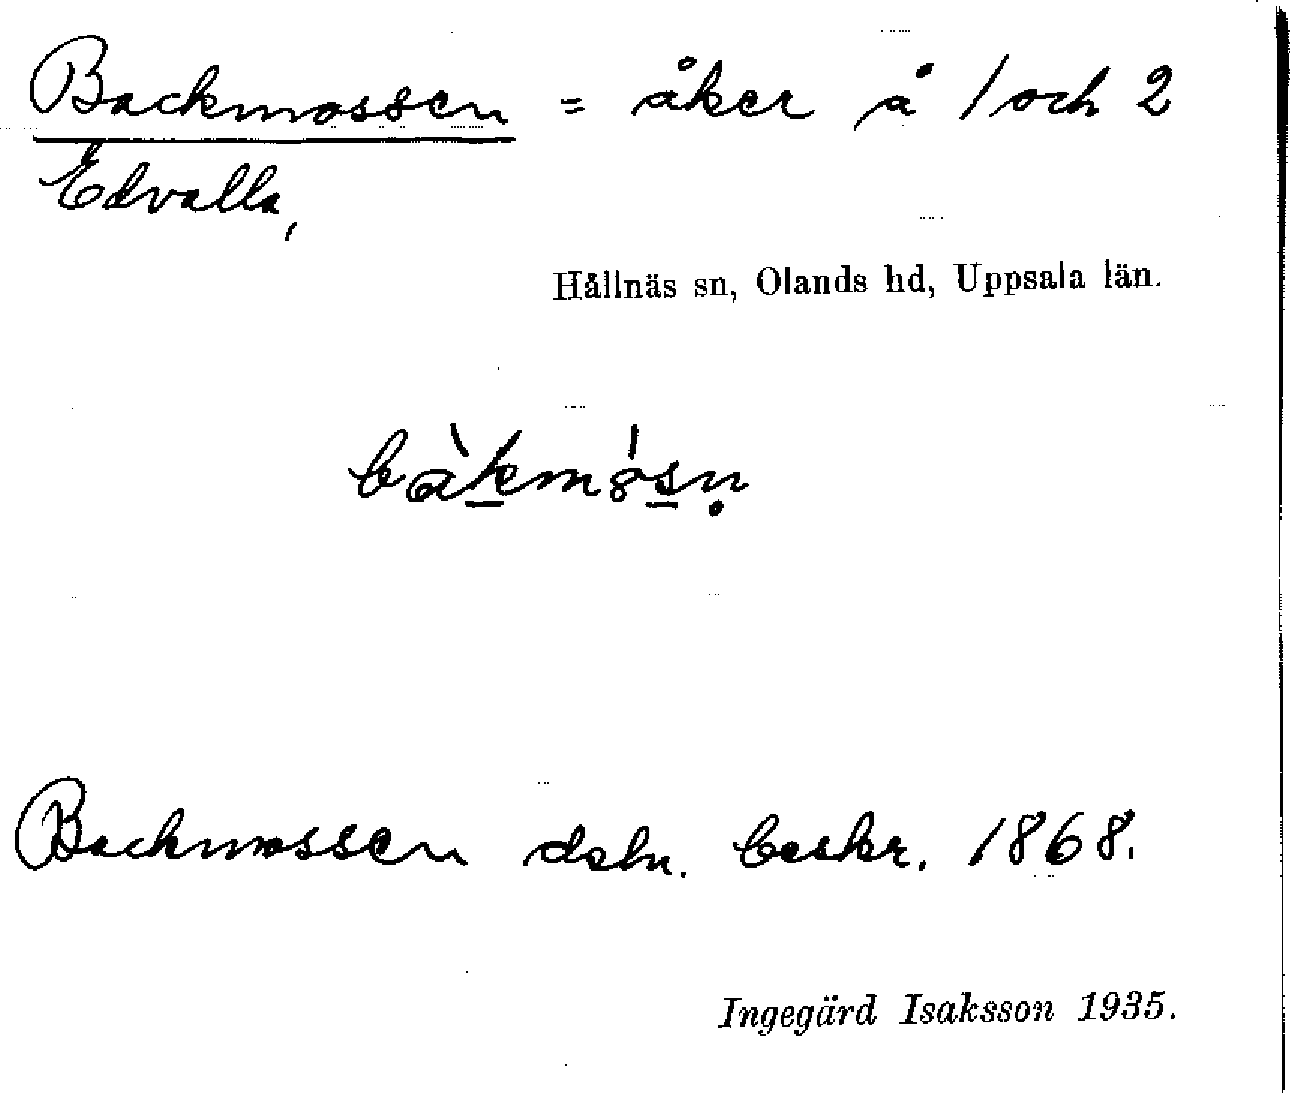 Backmossen = åker å 1 och 2
Edvalla,
Hållnäs sn, Olands hd, Uppsala län.
bàk̲mó̀s̲ṇ
Backmossen dsbn. beskr. 1868.
Ingegärd Isaksson 1935.